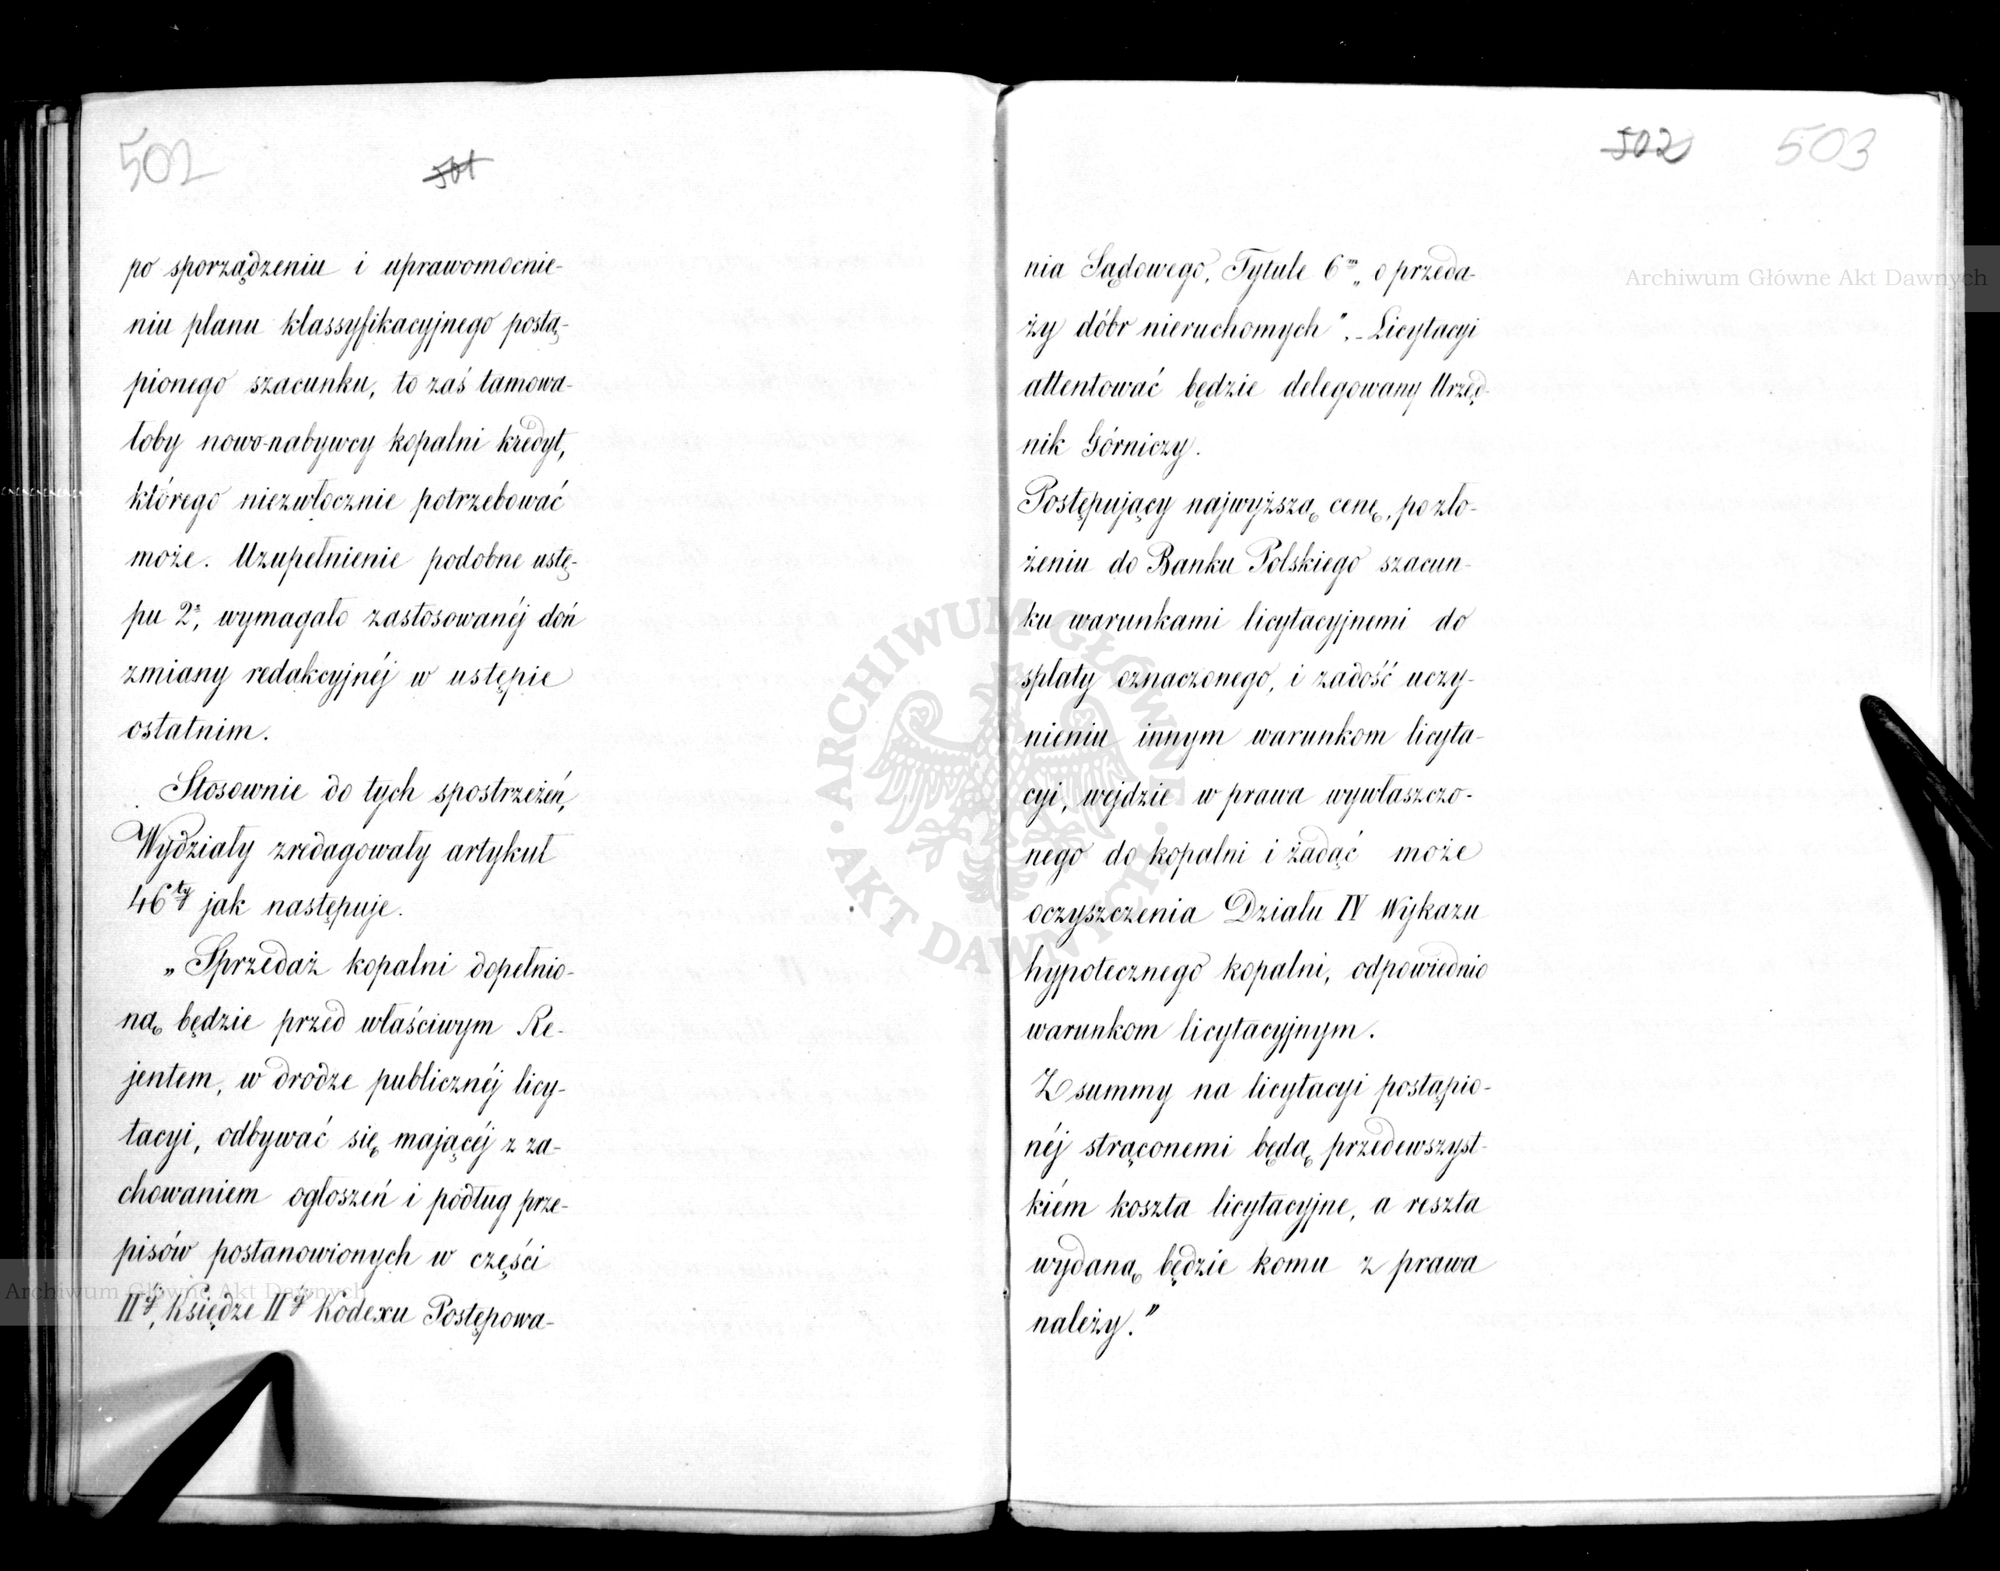 502
501
po sporządzeniu i uprawomocnie-
niu planu klassyfikacyjnego postą-
pionego szacunku, to zaś tamowa-
łoby nowo-nabywcy kopalni kredyt,
którego niezwłocznie potrzebować
może. Uzupełnienie podobne ustę-
pu 2º, wymagało zastosowanéj doń
zmiany redakcyjnéj w ustępie
ostatnim.
Stosownie do tych spostrzeżeń,
Wydziały zredagowały artykuł
46ty jak następuje.
„Sprzedaż kopalni dopełnio-
ną będzie przed właściwym Re-
jentem, w drodze publicznéj licy-
tacyi, odbywać się mającéj z za-
chowaniem ogłoszeń i podług prze-
pisów postanowionych w części
IIéj, Księdze IIéj Kodexu Postępowa-
502 503
nia Sądowego, Tytule 6m „o przeda-
ży dóbr nieruchomych”. – Licytacyi
attentować będzie delegowany Urzęd-
nik Górniczy.
Postępujący najwyższą cenę, po zło-
żeniu do Banku Polskiego szacun-
ku warunkami licytacyjnemi do
spłaty oznaczonego, i zadość uczy-
nieniu innym warunkom licyta-
cyi, wejdzie w prawa wywłaszczo-
nego do kopalni i żądać może
oczyszczenia Działu IV Wykazu
hypotecznego kopalni, odpowiednio
warunkom licytacyjnym.
Z summy na licytacyi postąpio-
néj strąconemi będą przedewszyst-
kiém koszta licytacyjne, a reszta
wydaną będzie komu z prawa
należy.”
Archiwum Główne Akt Dawnych
Archiwum Główne Akt Dawnych
ARCHIWUM GŁÓWNE · AKT DAWNYCH ·